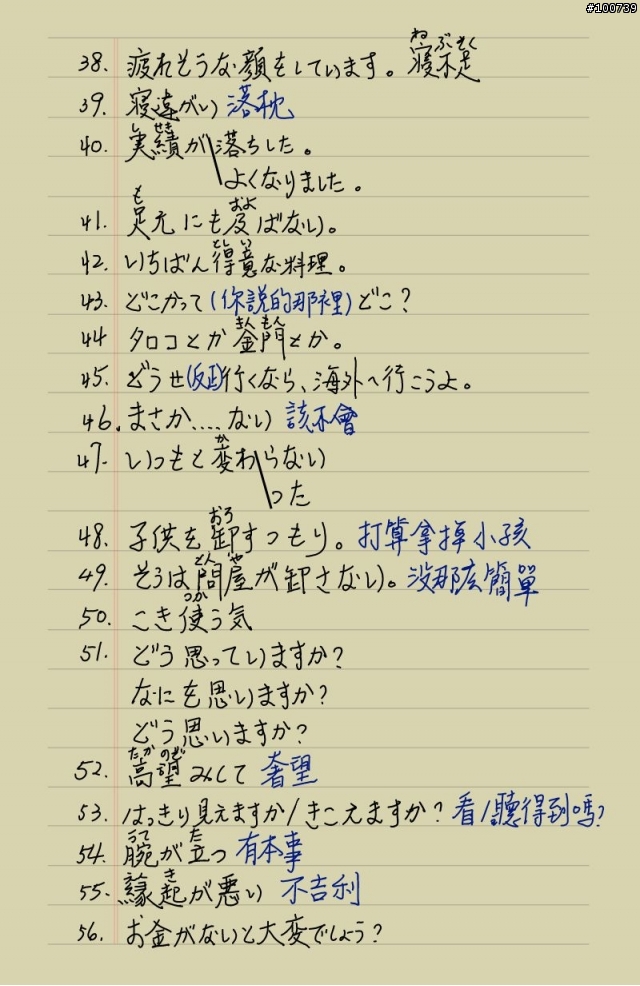 #100739
38. 疲れそうな顔をしています。寝不足
ねぶそく
39. 寝違がい 落枕
40. 実績が落ちした。
せき
よくなりました。
41. 足元にも及ばない。
も およ
42. いちばん得意な料理。
とくい
43. どこかって(你說的那裡)どこ?
44 タロコとか金門とか。
きんもん
45. どうせ(反正)行くなら、海外へ行こうよ。
46. まさか....ない 該不會
47. いつもと変わらない
か
った
48. 子供を卸すつもり。打算拿掉小孩
おろ
49. そうは問屋が卸さない。沒那広簡單
とんや
50. こき使う気
つか
51. どう思っていますか?
なにを思いますか?
どう思いますか?
52. 高望みして 奢望
たかのぞ
53. はっきり見えますか/きこえますか? 看/聽得到嗎?
54. 腕が立つ 有本事
うで た
55. 縁起が悪い 不吉利
き
56. お金がないと大変でしょう?